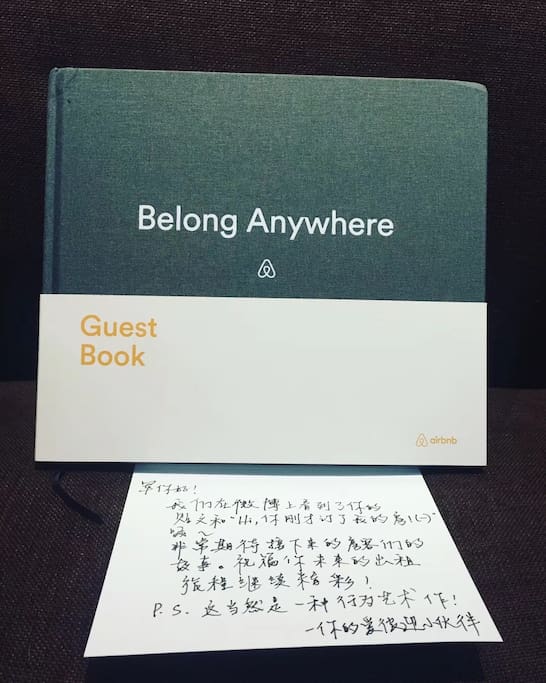 Belong Anywhere
Guest
Book
airbnb
你好!
我们在微博上看到了你的
贴文和"Hi,你刚才订了我的房(一)"
~
非常期待接下来的房客们的
故事。祝福你未来的出租
旅程继续精彩!
P.S. 这当然是一种行为艺术作!
—你的爱彼迎小伙伴